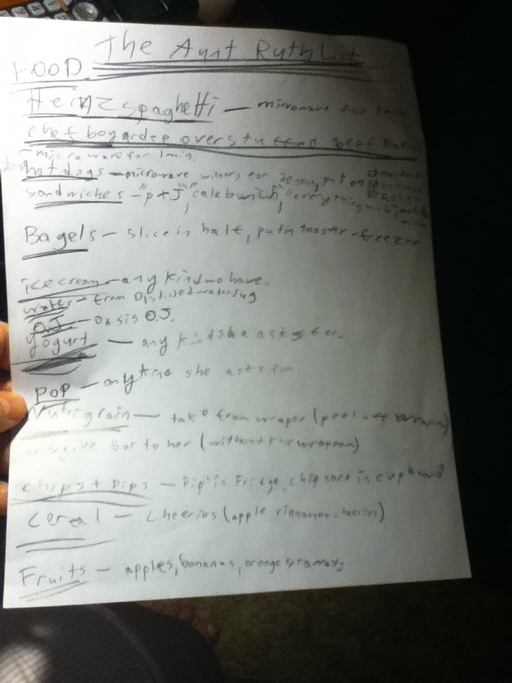 The Aunt Ruth List
FOOD
Heinz spaghetti - microwave for 1 min
chef boyardee overstuffed beef
microwave for 1 min.
hot dogs - microwave for 20 sec, put on
sandwiches - "P+J", "calebwich", "everything
Bagels - slice in half, put in toaster - freezer
icecream - any kind we have.
water - from Distilled water jug
OJ - Oasis OJ.
yogurt - any kind she asks for.
POP - any kind she asks for
Nutrigrain - take from wraper (peel off wrapper)
give Bar to her (without the wrapper)
chips + Dips - Dip in Fridge, chips are in cupboard
cereal - Cheerios (apple cinnamon cheerios)
Fruits - apples, bananas, oranges,